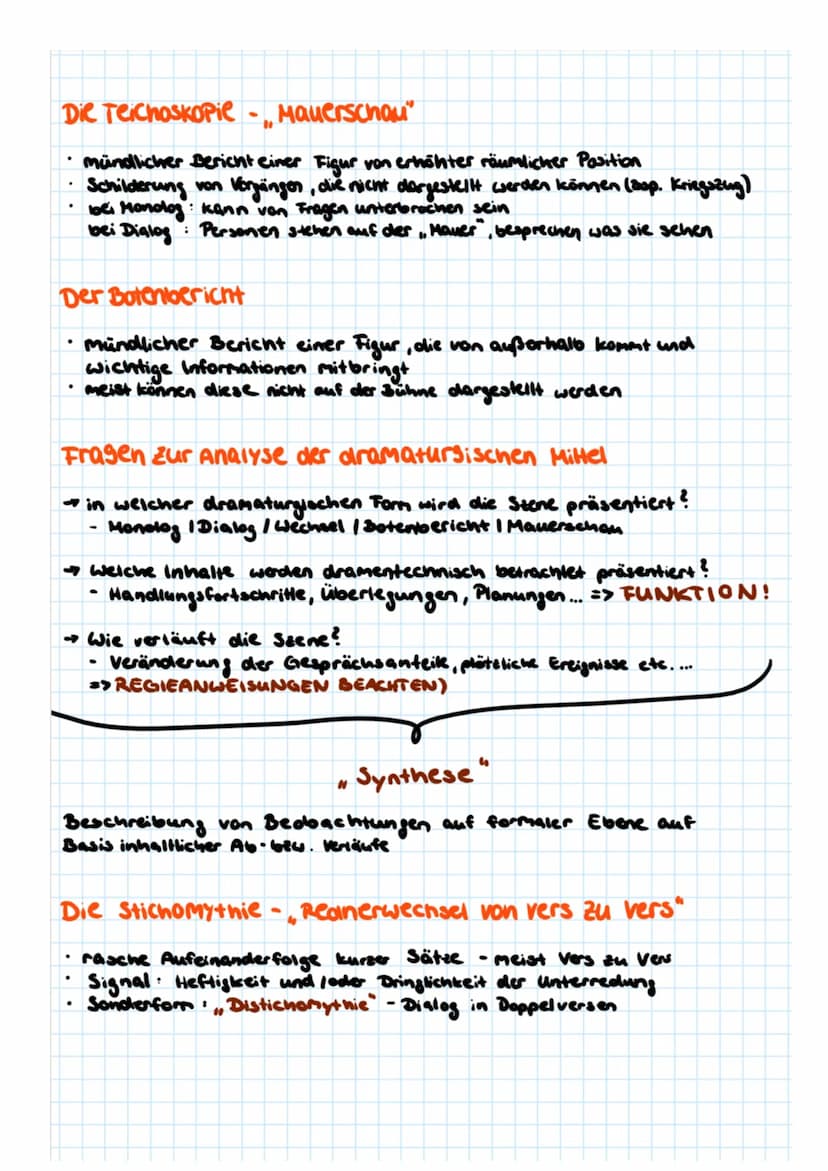 Die Teichoskopie - „Mauerschau"
· mündlicher Bericht einer Figur von erhöhter räumlicher Position
· Schilderung von Vorgängen, die nicht dargestellt werden können (bsp. Kriegszug)
· bei Monolog: kann von Fragen unterbrochen sein
bei Dialog: Personen stehen auf der „Mauer", besprechen was sie sehen
Der Botenbericht
· mündlicher Bericht einer Figur, die von außerhalb kommt und
wichtige Informationen mitbringt
· meist können diese nicht auf der Bühne dargestellt werden
Fragen zur Analyse der dramaturgischen Mittel
→ in welcher dramaturgischen Form wird die Szene präsentiert?
- Monolog | Dialog / Wechsel | Botenbericht | Mauerschau
→ Welche Inhalte werden dramentechnisch betrachtet präsentiert?
- Handlungsfortschritte, Überlegungen, Planungen... => FUNKTION!
→ Wie verläuft die Szene?
- Veränderung der Gesprächsanteile, plötzliche Ereignisse etc. ...
=> REGIEANWEISUNGEN BEACHTEN)
„Synthese"
Beschreibung von Beobachtungen auf formaler Ebene auf
Basis inhaltlicher Ab- bzw. Verläufe
Die Stichomythie - „Rednerwechsel von Vers zu Vers"
· rasche Aufeinanderfolge kurzer Sätze - meist Vers zu Vers
· Signal: Heftigkeit und /oder Dringlichkeit der Unterredung
· Sonderform: „Distichomythie" - Dialog in Doppelversen